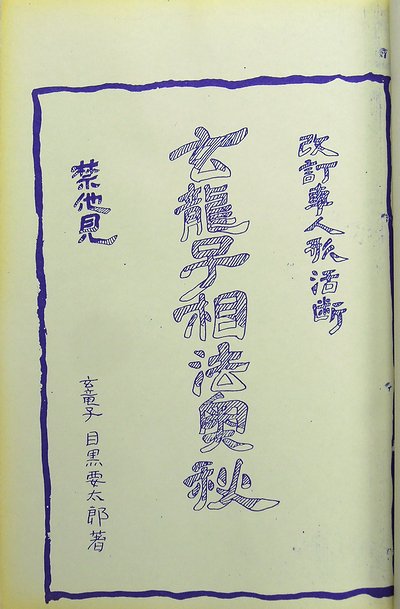 改訂車人形活断
玄龍子相法奥秘
禁他見
玄竜子 目黒要太郎著